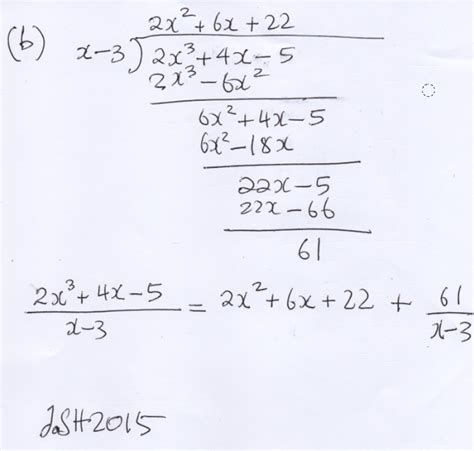 2x² + 6x + 22
(b) x-3) 2x³ + 4x - 5
2x³ - 6x²
6x² + 4x - 5
6x² - 18x
22x - 5
22x - 66
61
2x³ + 4x - 5 / x-3 = 2x² + 6x + 22 + 61 / x-3
JSH2015